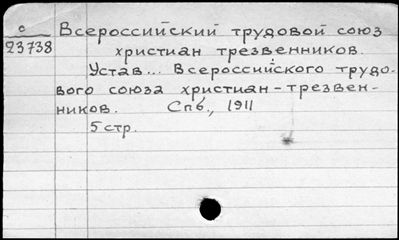 с
23738
Всероссийский трудовой союз
христиан трезвенников.
Устав... Всероссийского трудо-
вого союза христиан-трезвен-
ников. Спб., 1911
5 стр.